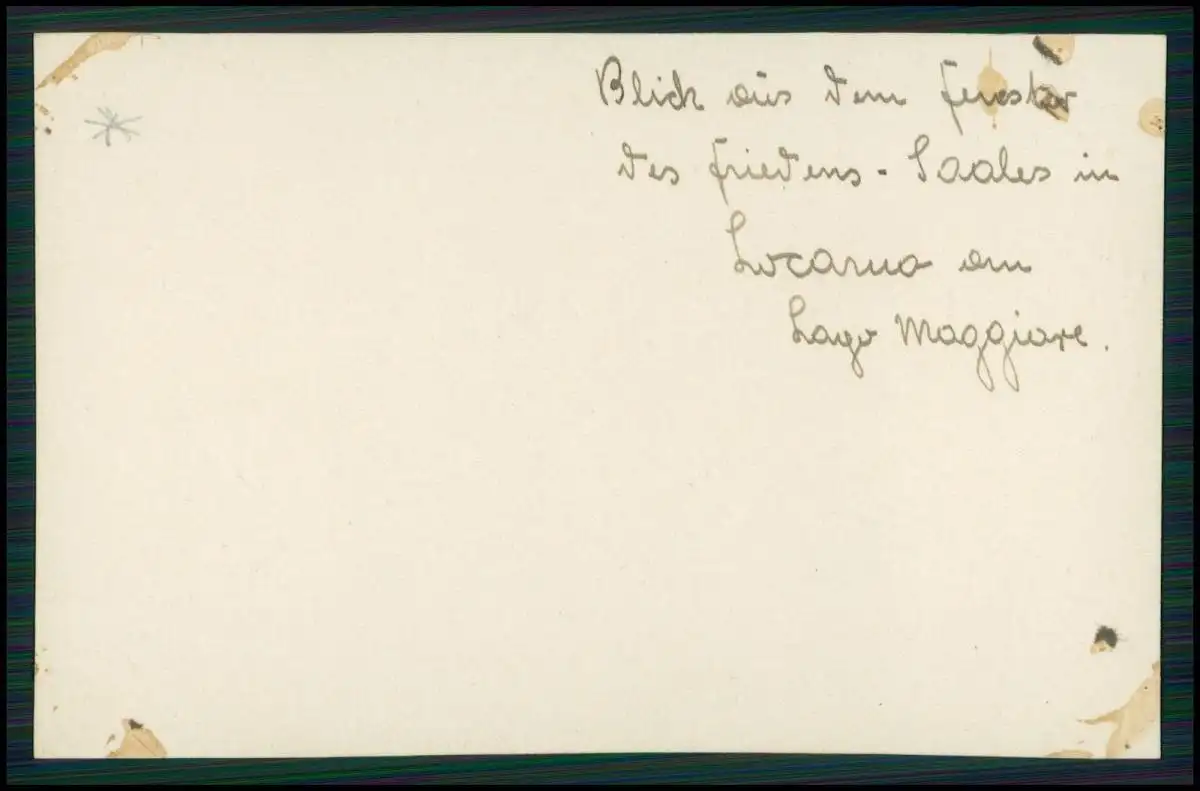 Blick aus dem Fenster
des Friedens-Saales in
Locarno am
Lago Maggiore.